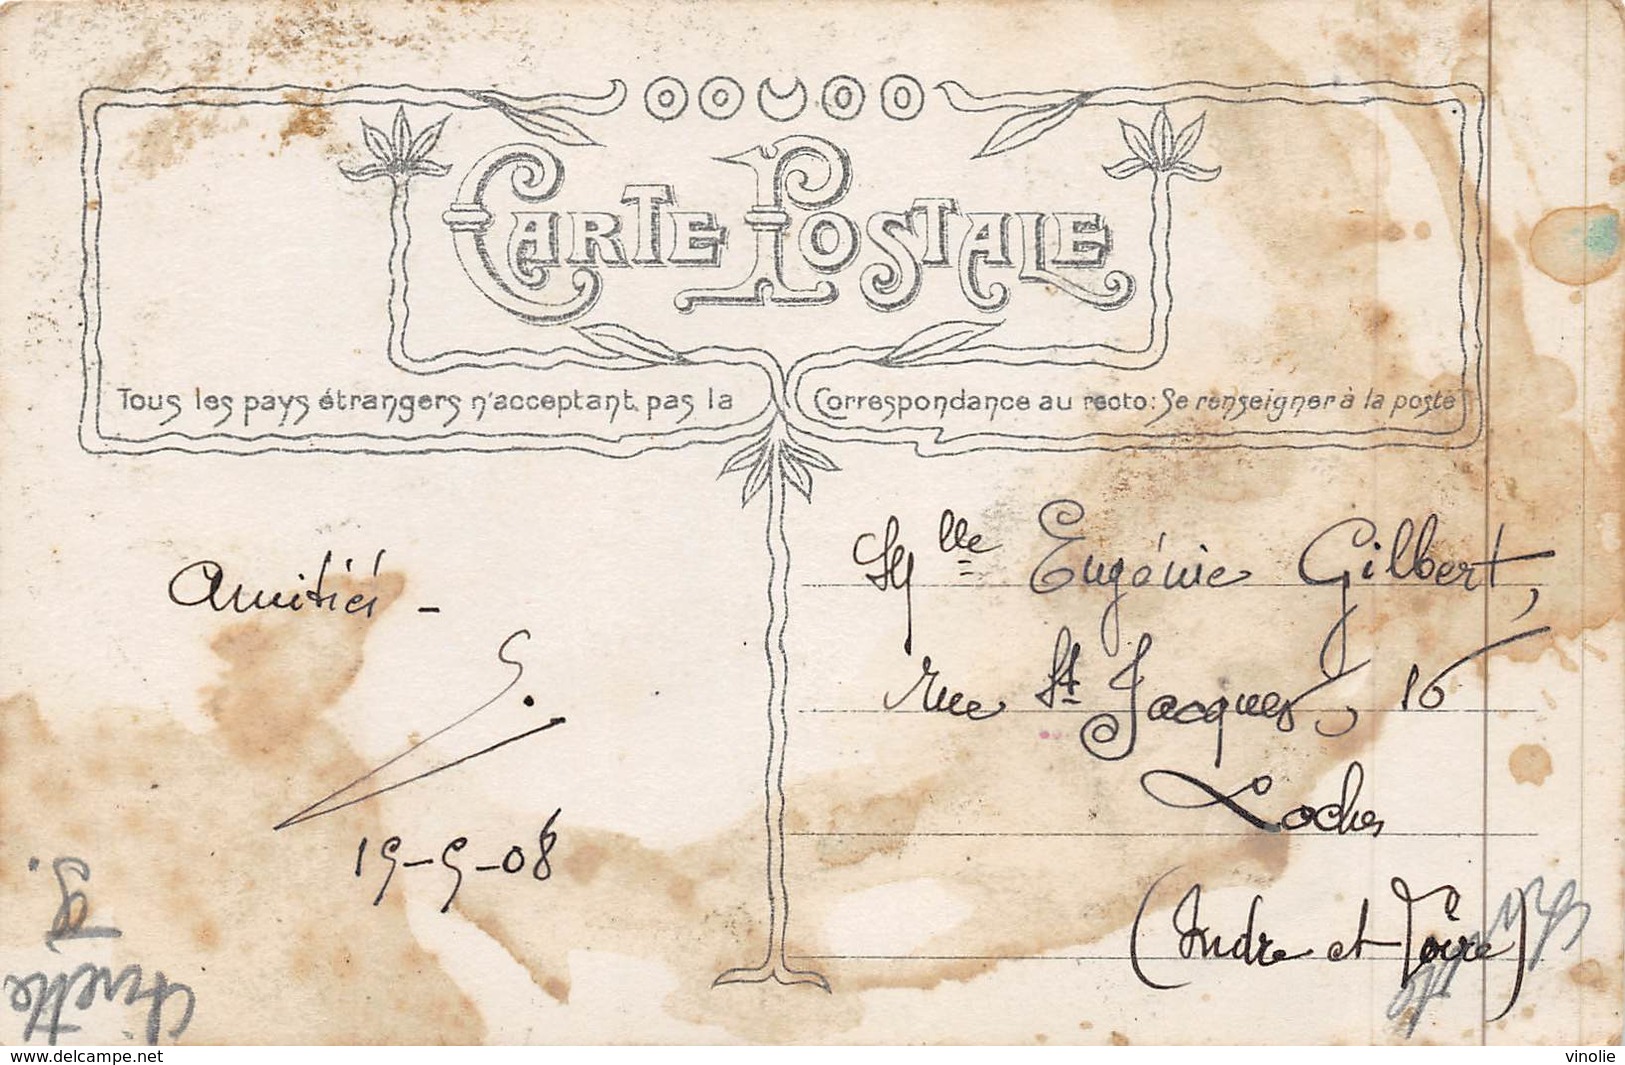 CARTE POSTALE
Tous les pays étrangers n'acceptant pas la Correspondance au recto: Se renseigner à la poste
Amitiés -
S.
19-9-08
Mlle Eugénie Gilbert,
rue St Jacques, 16
Loches
(Indre et Loire)
www.delcampe.net
vinolie